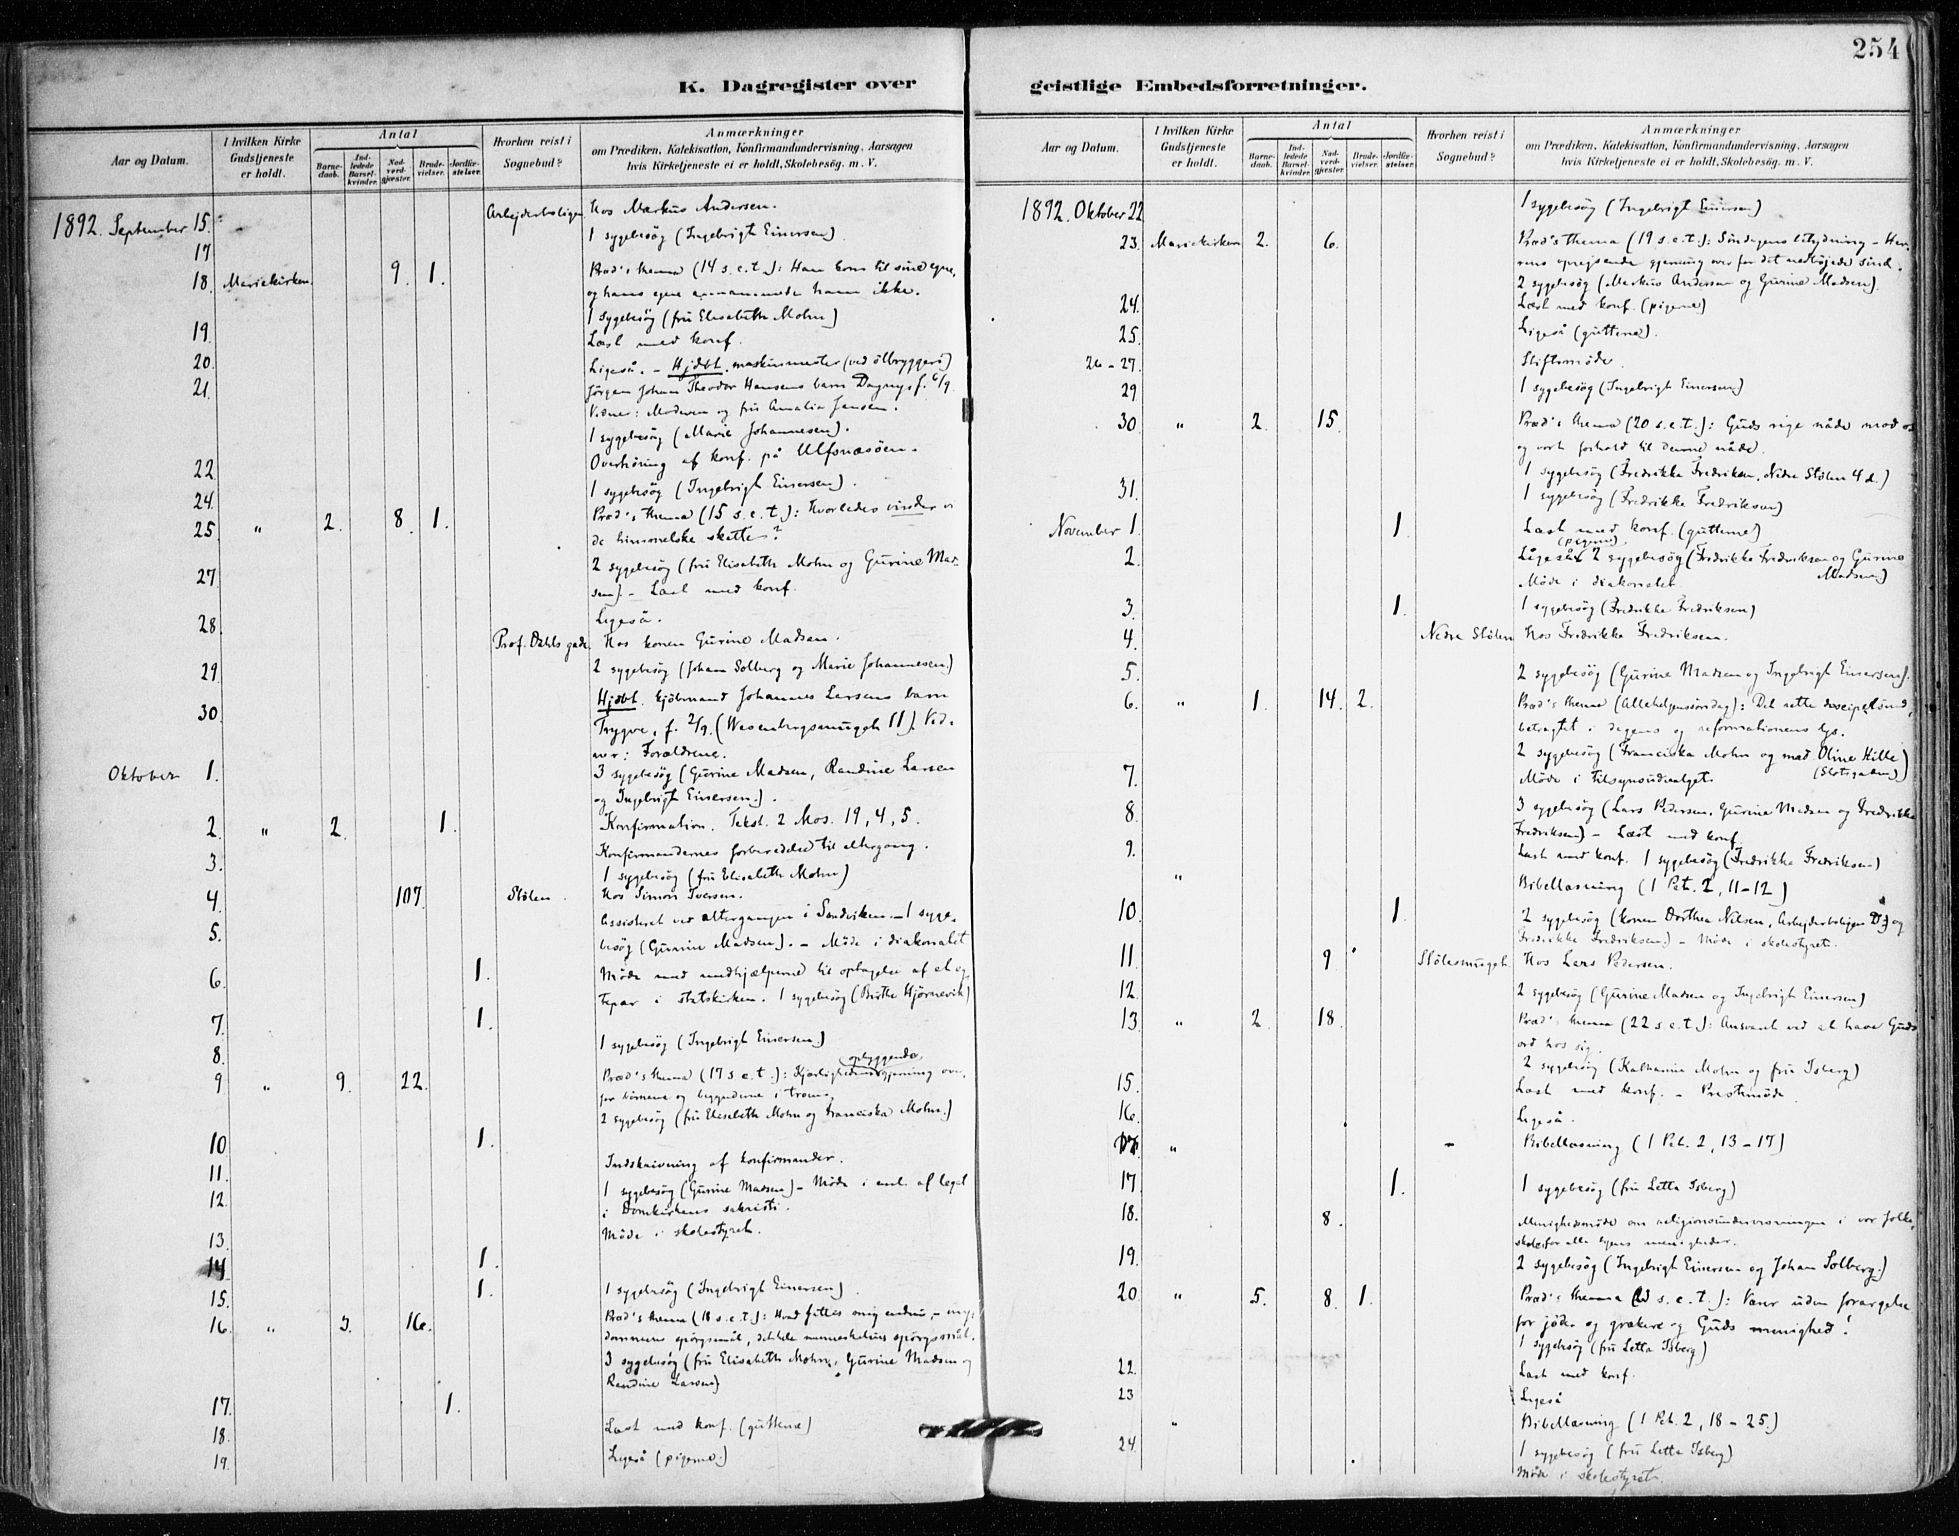 254
K. Dagregister over geistlige Embedsforretninger.
Aar og Datum.
I hvilken Kirke Gudstjeneste er holdt.
Antal
Barnedaab.
Indledede Barselkvinder.
Nadverdgjæster.
Brudevielser.
Jordfæstelser.
Hvorhen reist i Sognebud?
Anmærkninger
om Prædiken, Katekisation, Konfirmandundervisning, Aarsagen
hvis Kirketjeneste ei er holdt, Skolebesög. m. V.
1892. September 15. Arbejderboligen. Hos Markus Andersen.
17 1 sygebesög (Ingebrigt Einersen).
18. Mariekirken. 9. 1. Præd's thema (14 s.e.t.): Han kom til sine egne,
og hans egne annammede ham ikke.
1 sygebesög (fru Elisabeth Mohn)
19. Læst med konf.
20. Ligeså. - Hjdbt. maskinmester (ved ölbryggeri)
21. Jörgen Johan Theodor Hansens barn Dagny, f. 6/9.
Vidner: Moderen og fru Amalia Jensen.
1 sygebesög (Marie Johannesen).
22. Overhöring af konf. på Ulfsnæsöen.
24. 1 sygebesög (Ingebrigt Einersen).
25. " 2. 8. 1. Præd's thema (15 s.e.t.): Hvorledes vinder vi
de himmelske skatte?
27. 2 sygebesög (fru Elisabeth Mohn og Gurine Mad-
sen). - Læst med konf.
28. Ligeså.
Prof. Dahls gade. Hos konen Gurine Madsen.
29. 2 sygebesög (Johan Solberg og Marie Johannesen.)
30. Hjdbt. kjöbmand Johannes Larsens barn
Trygve, f. 2/9. (Wesenbergsmuget 11). Vid-
ner: Forældrene.
Oktober 1. 3 sygebesög (Gurine Madsen, Randine Larsen
og Ingebrigt Einersen.).
2. " 2. 1. Konfirmation. Tekst. 2 Mos. 19, 4, 5.
3. Konfirmandernes forberedelse til altergang.
1 sygebesög (fru Elisabeth Mohn)
4. 107. Stölen. Hos Simon Iversen.
5. Assisteret ved altergangen i Sandviken. - 1 syge-
besög (Gurine Madsen). - Möde i diakonatet
6. 1. Möde med medhjælperne til optagelse af et eg-
tepar i statskirken. 1 sygebesög (Birthe Hjörnevik)
7. 1.
8. 1 sygebesög (Ingebrigt Einersen)
9 " 9. 22. Præd's thema (17 s.e.t.): Kjærlighedens opbyggende gjerning over-
for börnene og byggenderne i troen.
2 sygebesög (fru Elisabeth Mohn og Franciska Mohn.)
10 1.
11. Indskrivning af konfirmander.
12. 1 sygebesög (Gurine Madsen) - Möde i anl. af legat
i Domkirkens sakristi.
13. Möde i skolestyret.
14 1.
15. 1. 1 sygebesög (Ingebrigt Einersen).
16. " 3. 16. Præd's thema (18 s.e.t.): Hvad fattes mig endnu, - ung-
dommens spörgsmål, det hele menneskelivs spörgsmål.
3 sygebesög (fru Elisabeth Mohn, Gurine Madsen og
Randine Larsen)
17. 1.
18. Læst med konf. (guttene)
19. Ligeså (pigerne.)
Aar og Datum.
I hvilken Kirke Gudstjeneste er holdt.
Antal
Barnedaab.
Indledede Barselkvinder.
Nadverdgjæster.
Brudevielser.
Jordfæstelser.
Hvorhen reist i Sognebud?
Anmærkninger
om Prædiken, Katekisation, Konfirmandundervisning, Aarsagen
hvis Kirketjeneste ei er holdt, Skolebesög. m. V.
1892. Oktober 22 1 sygebesög (Ingebrigt Einersen)
23. Mariekirken 2. 6. Præd's thema (19 s.e.t.): Söndagens betydning - Her-
rens oprejsende gjerning over for det nedböjede sind.
2 sygebesög (Markus Andersen og Gurine Madsen).
24. Læst med konf. (pigerne)
25. Ligeså (guttene).
26 - 27. Stiftsmöde.
29 1 sygebesög (Ingebrigt Einersen)
30 " 2. 15. Præd's thema (20 s.e.t.): Guds rige nåde mod os
og vort forhold til denne nåde.
1 sygebesög (Fredrikke Fredriksen, Nedre Stölen 4 d.)
31. 1 sygebesög (Fredrikke Fredriksen)
November 1. 1. Læst med konf. (guttene)
2. Ligeså (pigerne) 2 sygebesög (Fredrikke Fredriksen og Gurine
Madsen)
Möde i diakonatet
3. 1. 1 sygebesög (Fredrikke Fredriksen)
4. Nedre Stölen Hos Fredrikke Fredriksen.
5. 2 sygebesög (Gurine Madsen og Ingebrigt Einersen).
6. " 1. 14. 2. Præd's thema (Allehelgensöndag): Det rette discipelsind,
betragtet i dagens og reformationens lys.
2 sygebesög (Franciska Mohn og mad. Oline Hille)
(Slotsgaden)
7. Möde i tilsynsudvalget.
8. 3 sygebesög (Lars Pedersen, Gurine Madsen og Fredrikke
Fredriksen) - Læst med konf.
9. Læst med konf. 1 sygebesög (Fredrikke Fredriksen)
" Bibellæsning (1 Pet. 2, 11-12)
10. 1. 2 sygebesög (konen Dorthea Nilsen, Arbejderboligen D) og
Fredrikke Fredriksen.) - Möde i skolestyret.
11. 9 Stölesmuget. Hos Lars Pedersen.
12. 2 sygebesög (Gurine Madsen og Ingebrigt Einersen)
13 " 2. 18. Præd's thema (22 s.e.t.): Ansvaret ved at have Guds
ord hos sig.
2 sygebesög (Katharine Mohn og fru Isberg)
15. Læst med konf. - Prestemöde.
16. Ligeså.
" Bibellæsning (1 Pet. 2, 13-17)
17. 1. 1 sygebesög (fru Letta Isberg)
18. 8. Menighedsmöde om religionsundervisningen i vor folke-
skole for alle byens menigheder.
19. 2 sygebesög (Ingebrigt Einersen og Johan Solberg.)
20 " 5. 8. 1. Præd's thema (23 s.e.t.): Værer uden forargelse
for jöder og grækere og Guds menighed!
1 sygebesög (fru Letta Isberg)
22. Læst med konf.
23 Ligeså
" Bibellæsning (1 Pet. 2, 18-25.)
24. 1 sygebesög (fru Letta Isberg)
Möde i skolestyret.